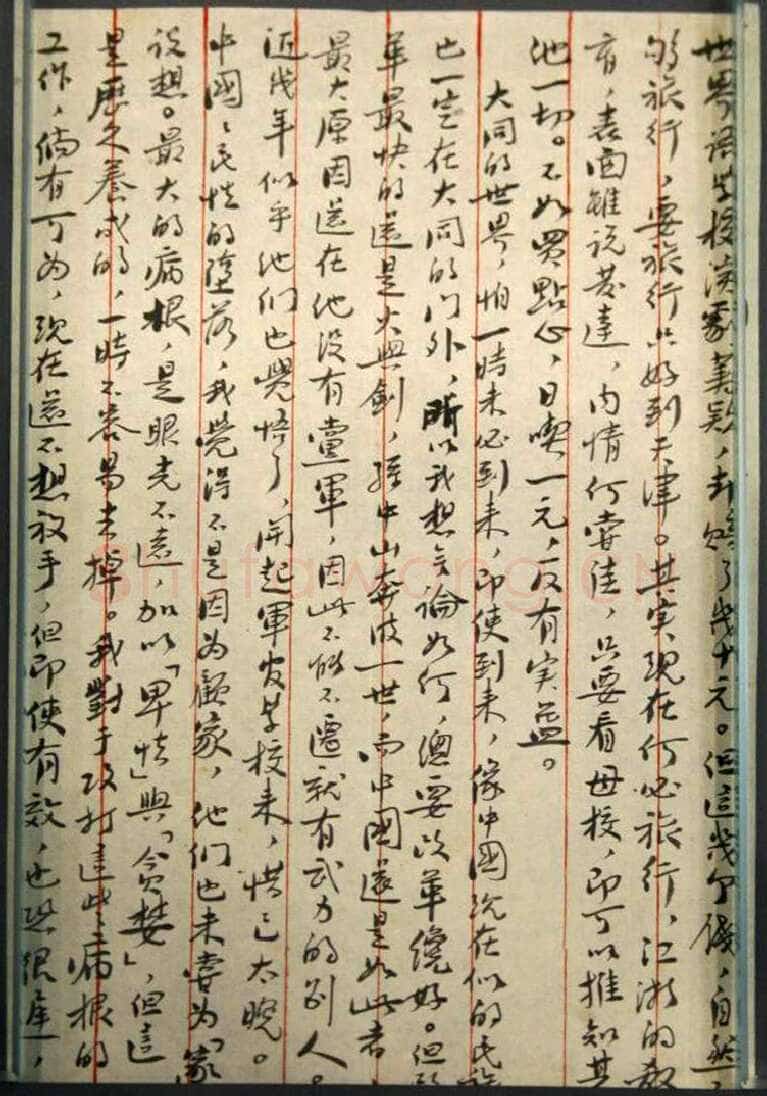 世界语学校演剧筹款，却賠了幾十元。但這幾个錢，自然
够旅行，要旅行只好到天津。其实現在何必旅行，江浙的教
育，表面雖说发達，内情何嘗佳，只要看母校，即可以推知其
他一切。不如買點心，日喫一元，反有実益。
大同的世界，怕一時未必到来，即使到来，像中國現在似的民族
也一定在大同的门外，所以我想無論如何，總要改革纔好。但改
革最快的還是火與劍，孫中山奔波一世，而中國還是如此者，
最大原因還在他没有黨軍，因此不能不遷就有武力的别人。
近幾年似乎他们也覺悟了，開起軍官学校来，惜已太晚。
中國國民性的墮落，我覺得不是因为顧家，他们也未嘗为「家」
设想。最大的病根，是眼光不遠，加以「卑怯」與「貪婪」，但這
是歷久養成的，一時不容易去掉。我對于攻打這些病根的
工作，倘有可为，現在還不想放手，但即使有效，也恐很遲，
shufawang.CN